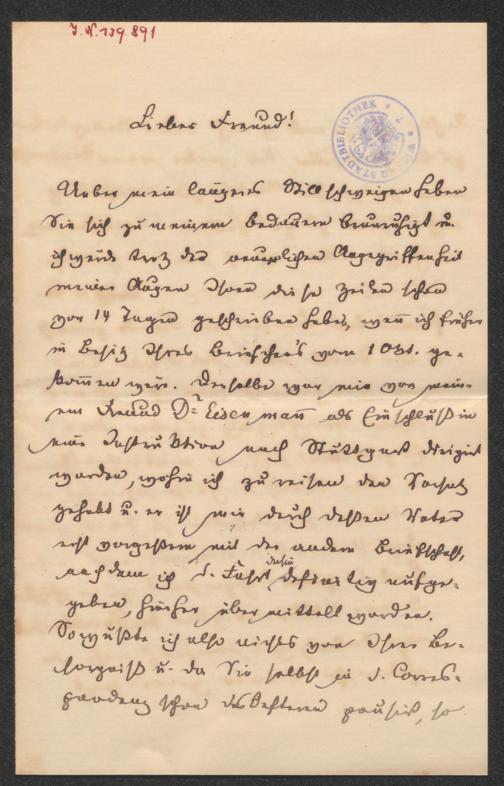 J. N. 139.891
WIENER STADTBIBLIOTHEK
Lieber Freund!
Ueber mein längeres Stillschweigen haben
Sie sich zu meinem Bedauern beunruhigt u.
ich würde trotz der Angegriffenheit
meiner Augen Ihnen diese Zeilen schon
vor 14 Tagen geschrieben haben, wenn ich früher
in Besitz Ihres Briefchens vom 1 Okt. ge-
kommen wäre. Derselbe war mir von mein-
em Freund Dr Eisenmann als Einschluß in
eine Instruktion nach Stuttgart dirigirt
worden, wohin ich zu reisen den Vorsatz
gehabt u. er ist mir durch dessen Vater
erst vorgestern mit der andern Briefschaft,
nachdem ich d. Fahrt dahin definitiv aufge-
geben, hieher übermittelt worden.
So wußte ich also nichts von Ihrer Be-
sorgniß u. da Sie selbst in d. Corres-
pondenz schon des Oefteren pausirt, so